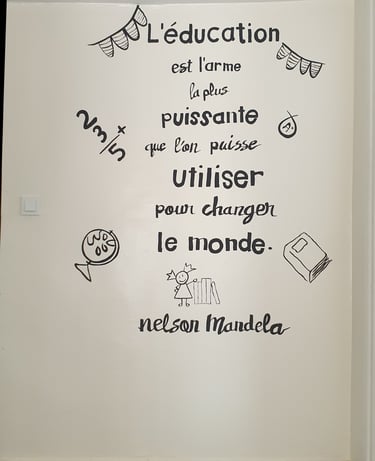 L'éducation
est l'arme
la plus
puissante
que l'on puisse
utiliser
pour changer
le monde.
nelson Mandela
2 3 + 5